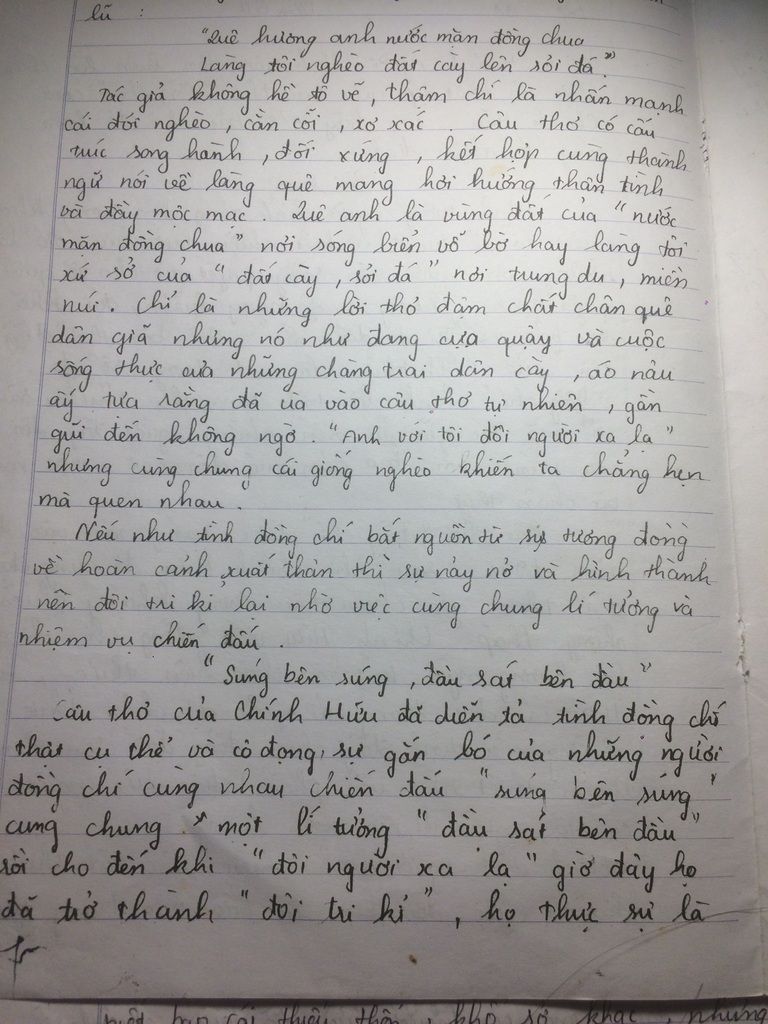 lũ :
"Quê hương anh nước mặn đồng chua
Làng tôi nghèo đất cày lên sỏi đá."
Tác giả không hề tô vẽ, thậm chí là nhấn mạnh
cái đói nghèo, cằn cỗi, xơ xác. Câu thơ có cấu
trúc song hành, đối xứng, kết hợp cùng thành
ngữ nói về làng quê mang hơi hướng thân tình
và đầy mộc mạc. Quê anh là vùng đất của "nước
mặn đồng chua" nơi sóng biển vỗ bờ hay làng tôi
xứ sở của "đất cày, sỏi đá" nơi trung du, miền
núi. Chỉ là những lời thơ đậm chất chân quê
dân giã nhưng nó như đang cựa quậy và cuộc
sống thực của những chàng trai dân cày, áo nâu
ấy tựa rằng đã ùa vào câu thơ tự nhiên, gần
gũi đến không ngờ. "Anh với tôi đôi người xa lạ"
nhưng cùng chung cái giống nghèo khiến ta chẳng hẹn
mà quen nhau.
Nếu như tình đồng chí bắt nguồn từ sự tương đồng
về hoàn cảnh xuất thân thì sự nảy nở và hình thành
nên đôi tri kỉ lại nhờ việc cùng chung lí tưởng và
nhiệm vụ chiến đấu.
"Súng bên súng, đầu sát bên đầu"
Câu thơ của Chính Hữu đã diễn tả tình đồng chí
thật cụ thể và cô đọng, sự gắn bó của những người
đồng chí cùng nhau chiến đấu "súng bên súng"
cùng chung một lí tưởng "đầu sát bên đầu"
rồi cho đến khi "đôi người xa lạ" giờ đây họ
đã trở thành "đôi tri kỉ", họ thực sự là
khổ sở khác, nhưng